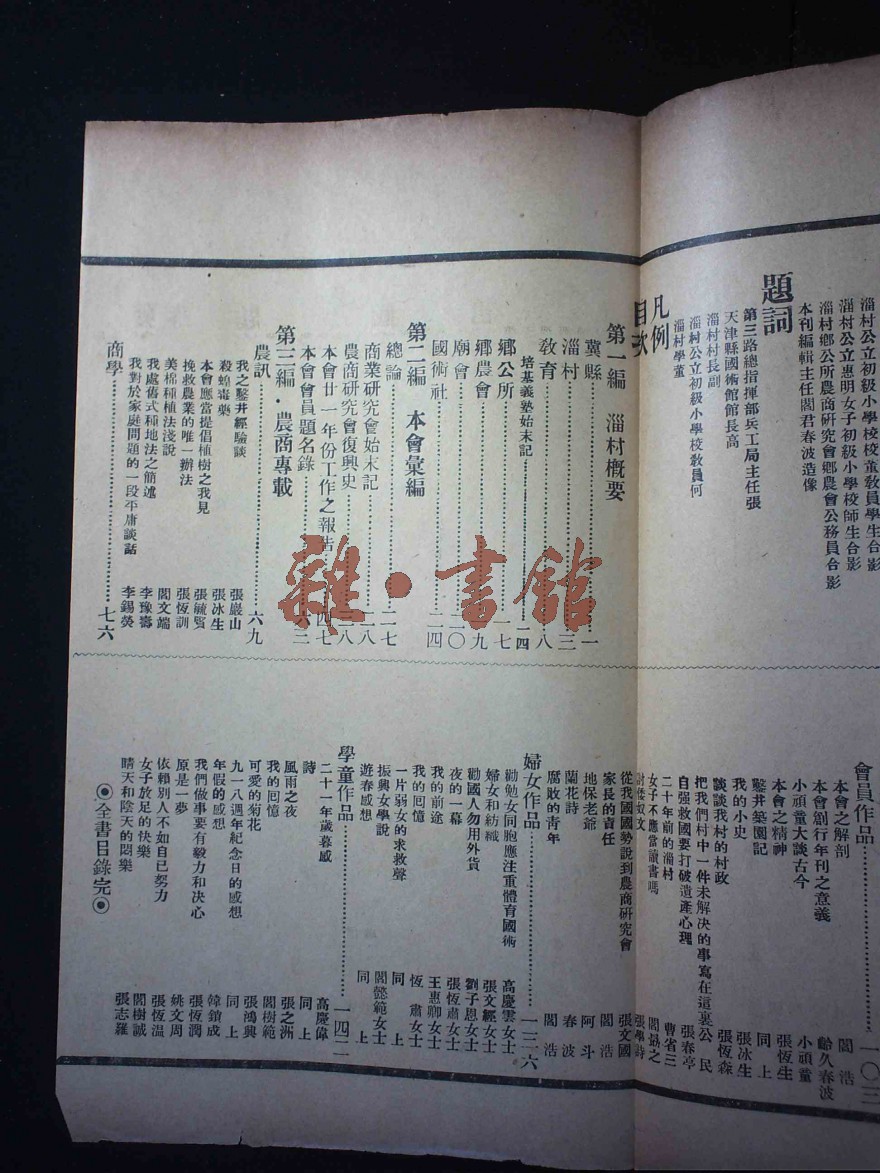 淄村公立初級小學校校董敎員學生合影
淄村公立惠明女子初級小學校師生合影
淄村鄉公所農商硏究會鄉農會公務員合影
本刊編輯主任閻君春波造像
題詞
第三路總指揮部兵工局主任張
天津縣國術館館長高
淄村村長副
淄村公立初級小學校敎員何
淄村學董
凡例
目次
第一編 淄村槪要
冀縣 一
淄村 三
敎育 八
培基義塾始末記 一四
鄉公所 一七
鄉農會 一九
廟會 二〇
國術社 二四
第二編 本會彙編
總論 二七
商業硏究會始末記 二八
農商硏究會復興史 三八
本會廿一年份工作之報告 四七
本會會員題名錄 六三
第三編·農商專載
農訊 六九
我之鑿井經驗談 張巖山
殺蝗毒藥 張冰生
本會應當提倡植樹之我見 張毓賢
挽救農業的唯一辦法 張恆訓
美棉種植法淺說 閻文端
我處舊式種地法之簡述 李豫壽
我對於家庭問題的一段平庸談話 李錫榮
商學 七六
會員作品 一〇三
本會之解剖 閻浩
本會創行年刊之意義 齡久春波
小頑童大談古今 小頑童
本會之精神 張恆生
鑿井築園記 同上
我的小史 張冰生
談談我村的村政 張恆森
把我們村中一件未解決的事寫在這裏 公民
自强救國要打破遺產心理 張春亭
二十年前的淄村 曹省三
女子不應當讀書嗎 閻勗之
討倭奴文 張學詩
從我國國勢說到農商硏究會 張文國
家長的責任 閻浩
地保老爺 阿斗
蘭花詩 春波
腐敗的靑年 閻浩
婦女作品 一三六
勸勉女同胞應注重體育國術 高慶雲女士
婦女和紡織 張文經女士
勸國人勿用外貨 劉子恩女士
夜的一幕 張恆肅女士
我的前途 王惠卿女士
我的回憶 恆肅女士
一片弱女的求救聲 同上
振興女學說 閻懿範女士
遊春感想 同上
學童作品 一四二
二十一年歲暮感 高慶偉
詩 同上
風雨之夜 張之洲
我的回憶 閻樹範
可愛的菊花 張鴻興
九一八週年紀念日的感想 同上
年假的感想 韓鎖成
我們做事要有毅力和決心 張恆潤
原是一夢 姚文周
依賴別人不如自已努力 張恆温
女子放足的快樂 閻樹誠
晴天和陰天的悶樂 張志羅
◉全書目錄完◉
雜·書館